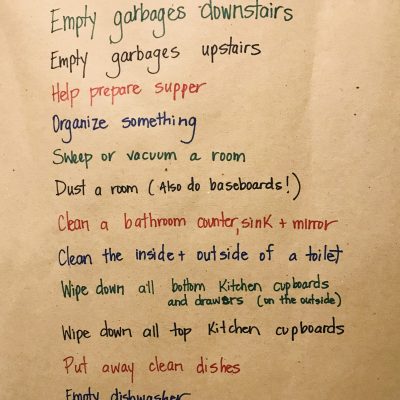 Empty garbages downstairs
Empty garbages upstairs
Help prepare supper
Organize something
Sweep or vacuum a room
Dust a room (Also do baseboards!)
Clean a bathroom counter, sink + mirror
Clean the inside + outside of a toilet
Wipe down all bottom Kitchen cupboards
and drawers (on the outside)
Wipe down all top Kitchen cupboards
Put away clean dishes
Empty dishwasher